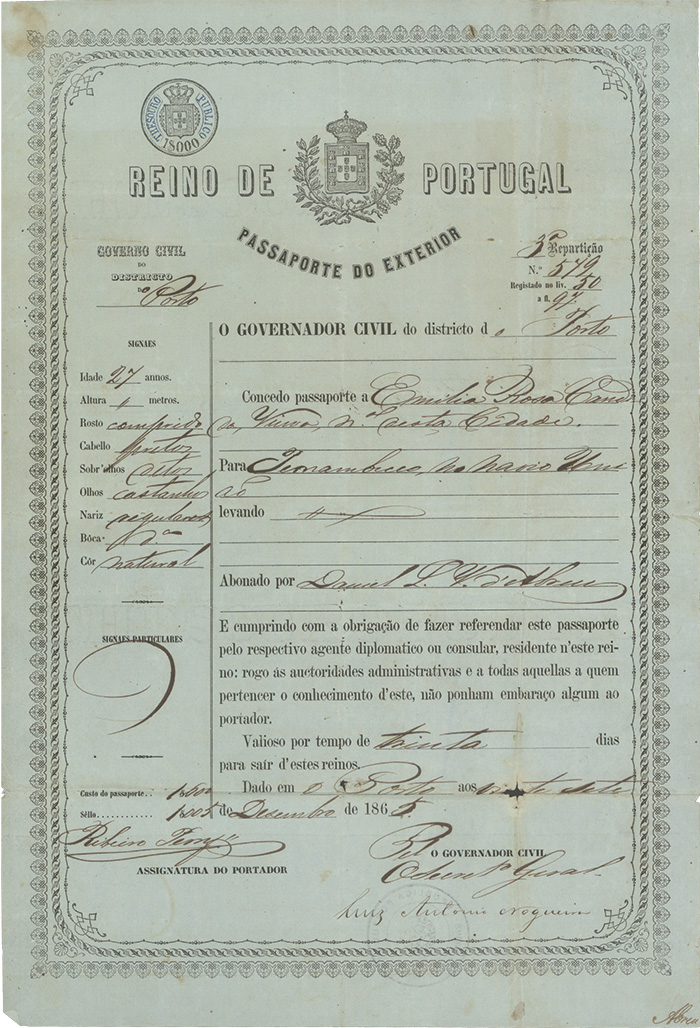 THESOURO PUBLICO
1$000
REINO DE PORTUGAL
PASSAPORTE DO EXTERIOR
GOVERNO CIVIL
DO
DISTRICTO
do Porto
3ª Repartição
N.º 579
Registado no liv. 50
a fl. 97
SIGNAES
Idade 27 annos.
Altura metros.
Rosto comprido
Cabello pretos
Sobr'olhos ditos
Olhos castanhos
Nariz regulares
Bôca dª
Côr natural
SIGNAES PARTICULARES
Custo do passaporte..
Sêllo
O GOVERNADOR CIVIL do districto do Porto
Concedo passaporte a Emilia Rosa Candi
da, Viuva, n.al desta Cidade.
Para Pernambuco, no navio União
levando
Abonado por Daniel
E cumprindo com a obrigação de fazer referendar este passaporte
pelo respectivo agente diplomatico ou consular, residente n'este rei-
no: rogo ás auctoridades administrativas e a todas aquellas a quem
pertencer o conhecimento d'este, não ponham embaraço algum ao
portador.
Valioso por tempo de trinta dias
para saír d'estes reinos.
Dado em o Porto aos vinte sete
de Desembro de 1865.
Ribeiro
ASSIGNATURA DO PORTADOR
O GOVERNADOR CIVIL
Geral
Luiz Antonio Nogueira